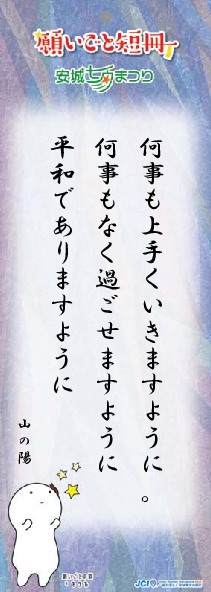 願いごと短冊
安城七夕まつり
何事も上手くいきますように。
何事もなく過ごせますように
平和でありますように
山の陽
願いごと短冊
JCI